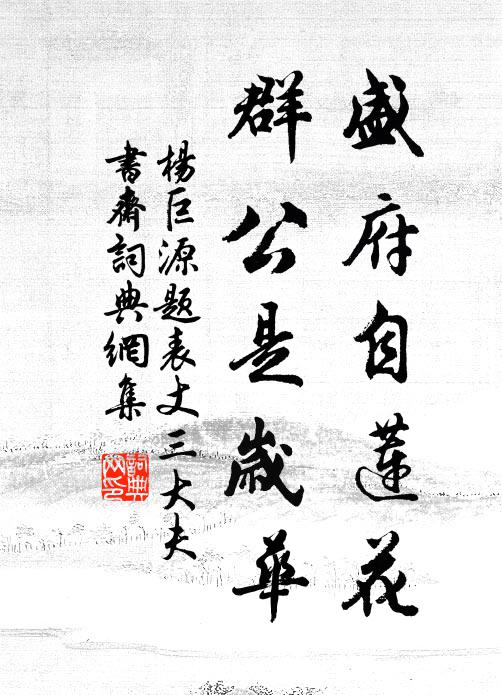 盛府自蓮花
群公是歲華
楊巨源題表丈三大夫
書齋詞典網集
詞典網印